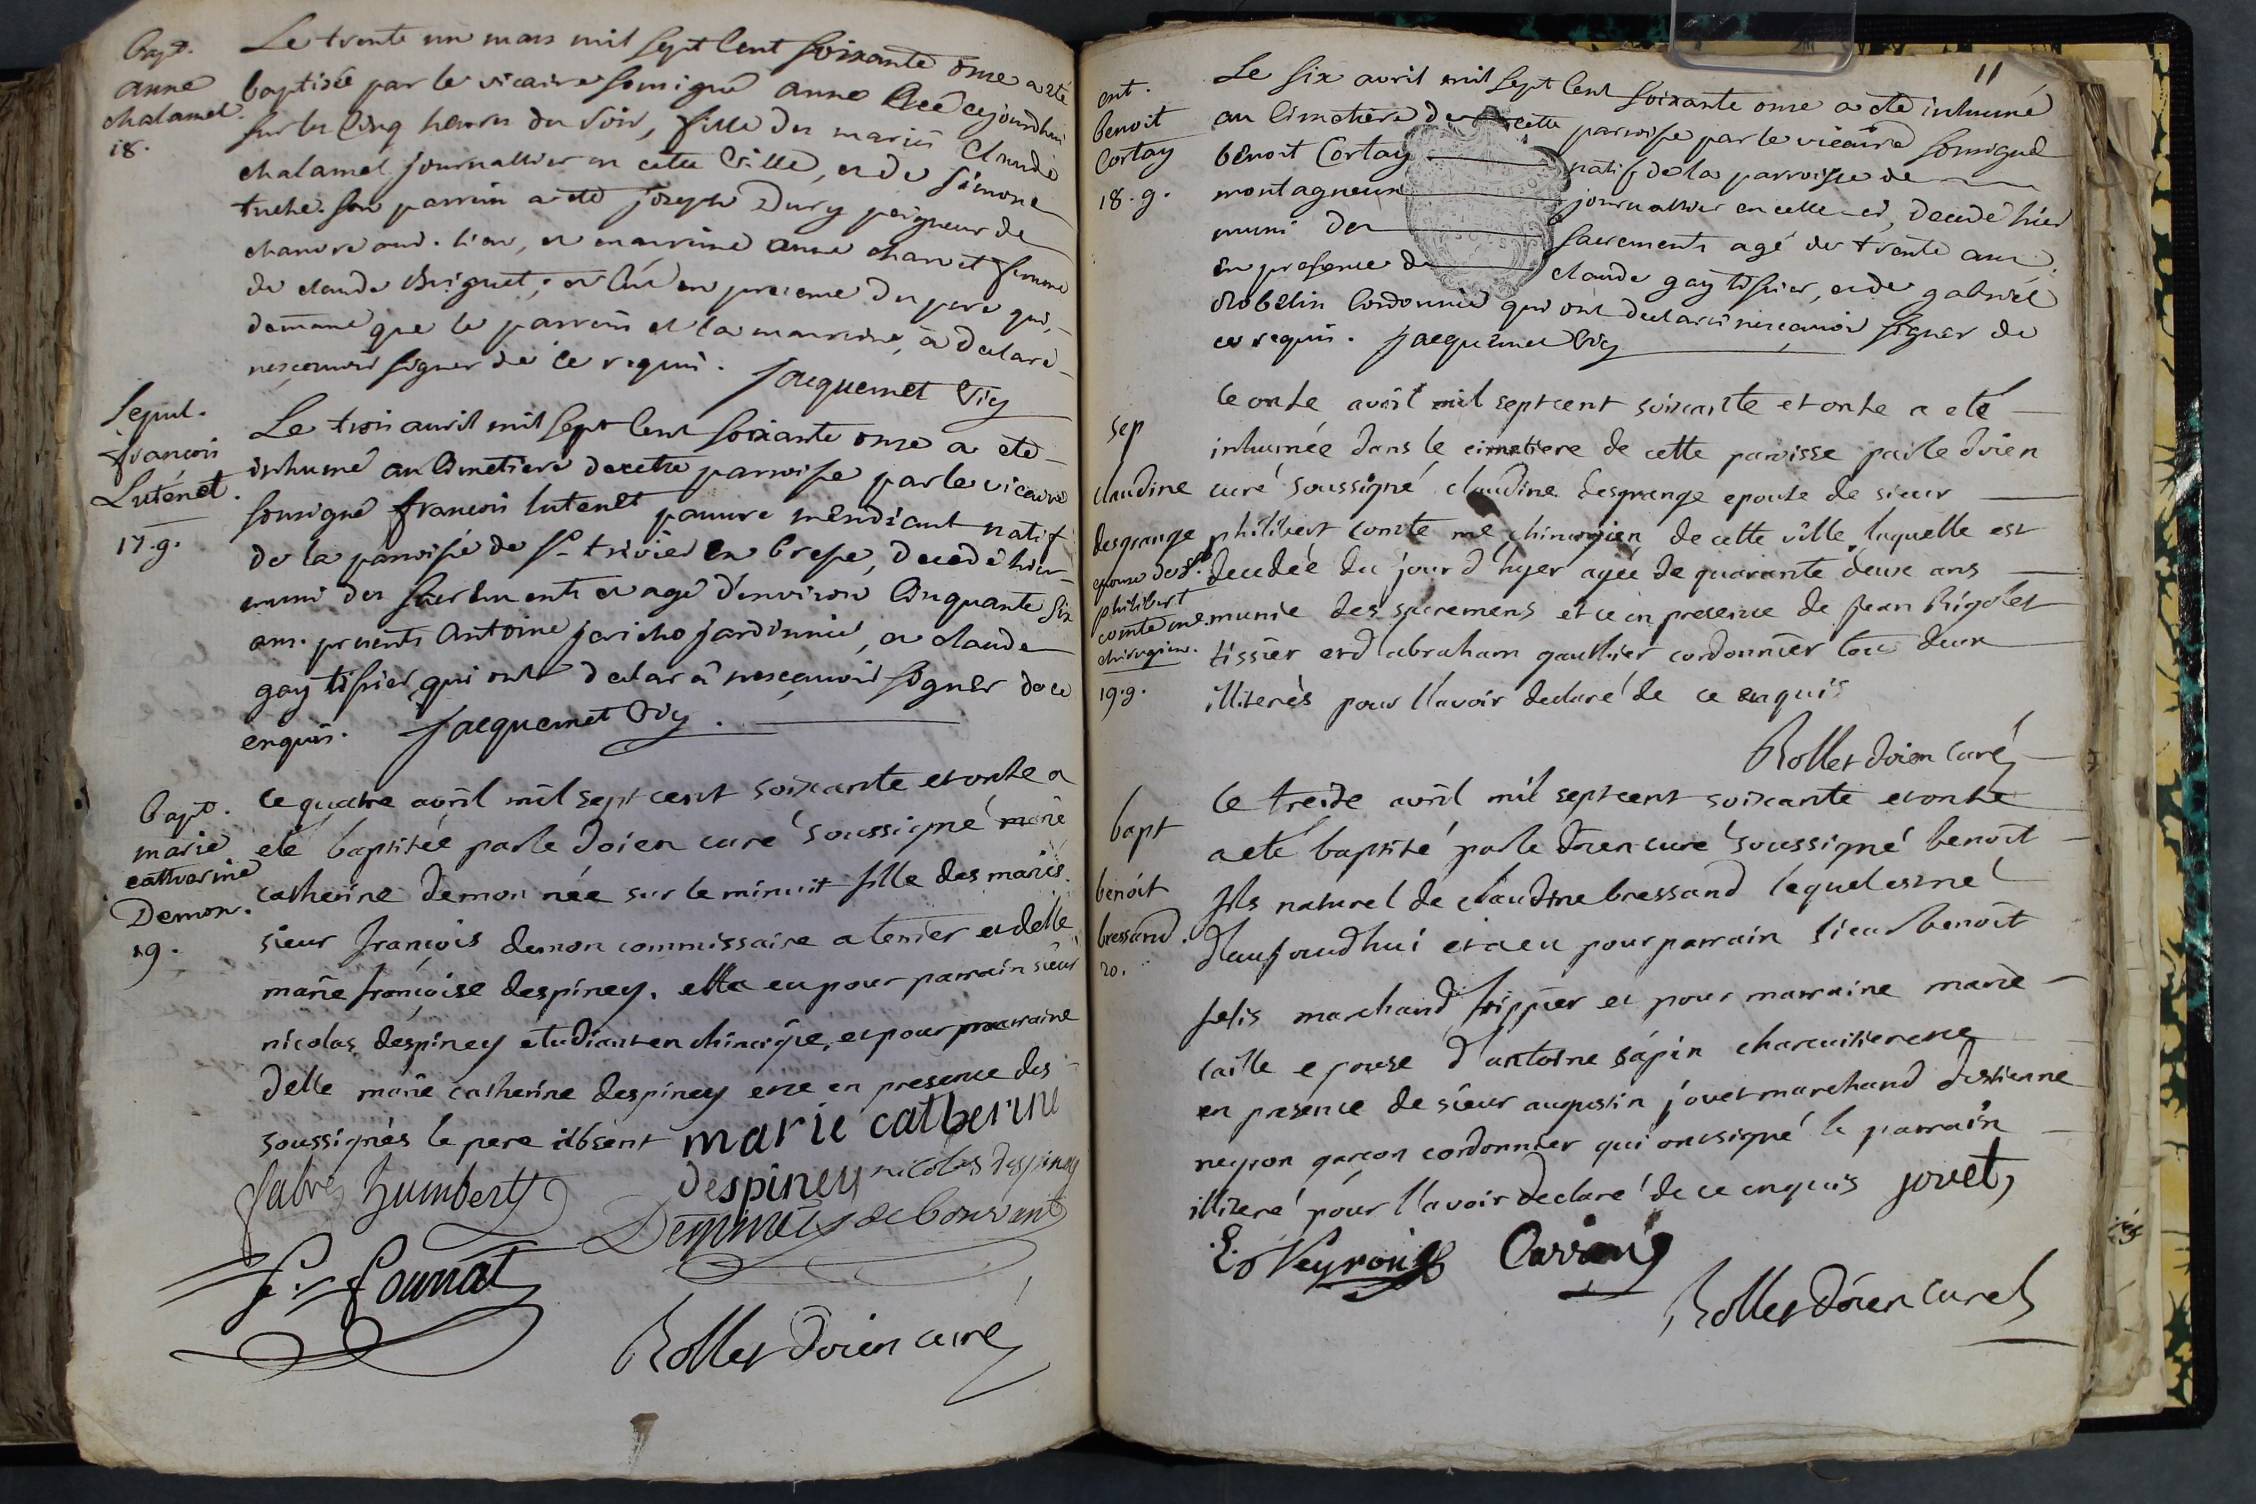 Bapt.
anne
chalamel.
18.
Le trente un mars mil sept cent soixante onse a eté
baptisée par le vicaire sousigné anne née cejourdhui
sur les cinq heures du soir, fille des mariés Claude
chalamel journallier en cette ville, et de simone
tuche. son parrain a eté joseph Dury peigneur de
chanvre aud. lieu, et marraine anne charvet femme
de claude Briguet, et en presence du pere qui,
de même que le parrain et la marraine, a declaré
nesçavoir signer de ce requis. Jacquemet Vic
Sepul.
françois
Lutenet.
17.g.
Le trois avril mil sept cent soixante onse a eté
inhumé au Cimetiere de cette parroisse par le vicaire
sousigné françois lutenet pauvre mendiant natif
de la parroisse de St trivier en bresse, decedé hier
muni des sacrements et agé d'environ Cinquante six
ans. presents Antoine jericho jardinnier, et claude
gay tissier qui ont declaré nesçavoir signer de ce
enquis. Jacquemet Vic.
Bapt.
marie
catherine
Demon.
19.
le quatre avril mil sept cent soixante et onze a
eté baptisée par le doien curé soussigné marie
catherine demon née sur le minuit fille des mariés
sieur françois demon commissaire a terrier et delle
marie françoise despiney. elle a eu pour parrain sieur
nicolas despiney etudiant en chirurgie, et pour marraine
delle marie catherine despiney et ce en presence des
soussignés le pere absent marie catherine
despiney nicolas despiney
humbert
de bonvant
f. fournat
Rollet doien curé
11
ent.
benoit
Cortay
18.g.
Le six avril mil sept cent soixante onse a eté inhumé
au Cimetiere de cette parroisse par le vicaire sousigné
benoit Cortay natif de la parroisse de
montagneux journallier en celle-ci, decedé hier
muni des sacrements agé de trente ans
en presence de claude gay tissier, et de gabriel
Robelin Cordonnier qui ont declaré nesçavoir signer de
ce requis. Jacquemet Vic
sep
claudine
desgrange
epouse de Sr
philibert
comte me
chirurgien.
19.g.
le onze avril mil sept cent soixante et onze a eté
inhumée dans le cimetiere de cette paroisse par le doien
curé soussigné claudine desgrange epouse de sieur
philibert comte me chirurgien de cette ville, laquelle est
decedée du jour d'hyer agée de quarante deux ans
munie des sacremens et ce en presence de jean Rigolet
tissier et d'abraham gauthier cordonnier tous deux
illiterés pour l'avoir declaré de ce enquis
Rollet doien curé
bapt
benoit
bressand.
20.
le treize avril mil sept cent soixante et onze
a eté baptisé par le doien curé soussigné benoit
fils naturel de claudine bressand lequel est né
d'aujourd'hui et a eu pour parrain sieur benoit
felis marchand frippier et pour marraine marie
caille epouse d'antoine sapin charcuitier et ce
en presence de sieur augustin jouet marchand d'estienne
neyron garçon cordonnier qui ont signé le parrain
illiteré pour l'avoir declaré de ce enquis jouet,
E. Neyron
Rollet doien curé